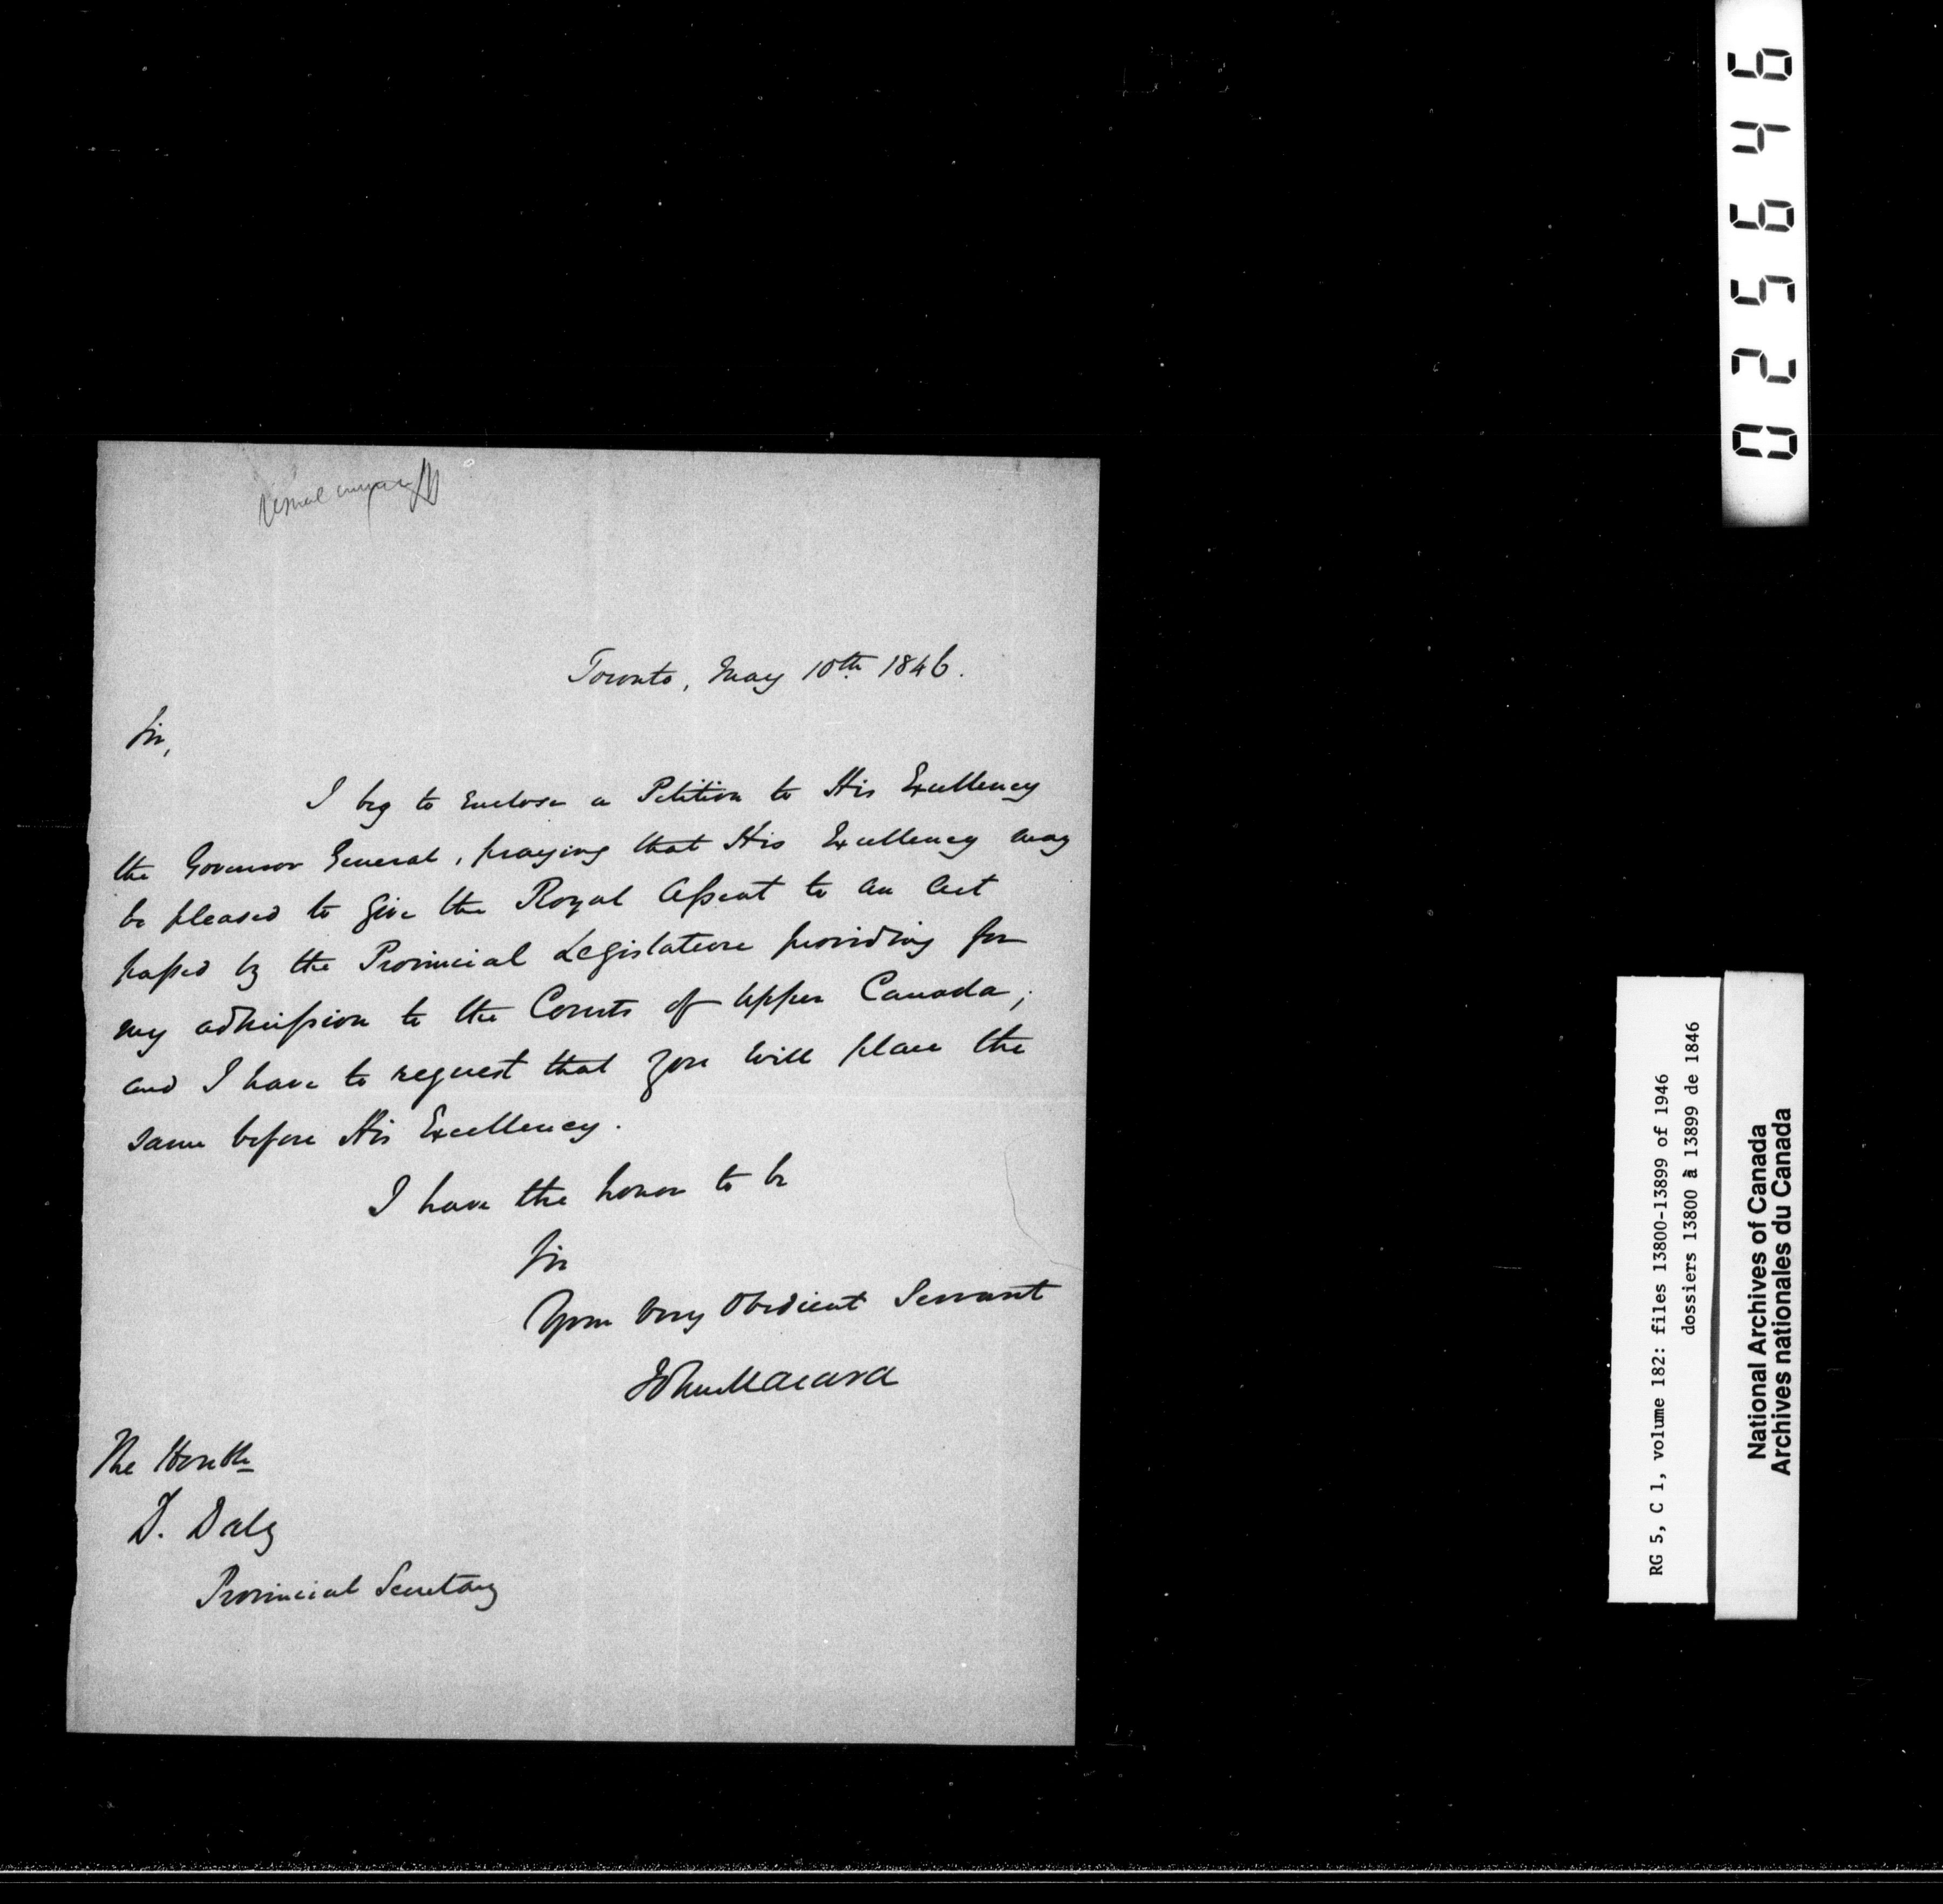 Toronto, May 10th 1846.
Sir,
I beg to enclose a Petition to His Excellency
the Governor General, praying that His Excellency may
be pleased to give the Royal Assent to an Act
passed by the Provincial Legislature providing for
my admission to the Courts of Upper Canada;
and I have to request that you will place the
same before His Excellency.
I have the honor to be
Sir
Your Very Obedient Servant
John Macara
The Honble
D. Daly
Provincial Secretary
025646
RG 5, C 1, volume 182: files 13800-13899 of 1946
dossiers 13800 à 13899 de 1846
National Archives of Canada
Archives nationales du Canada